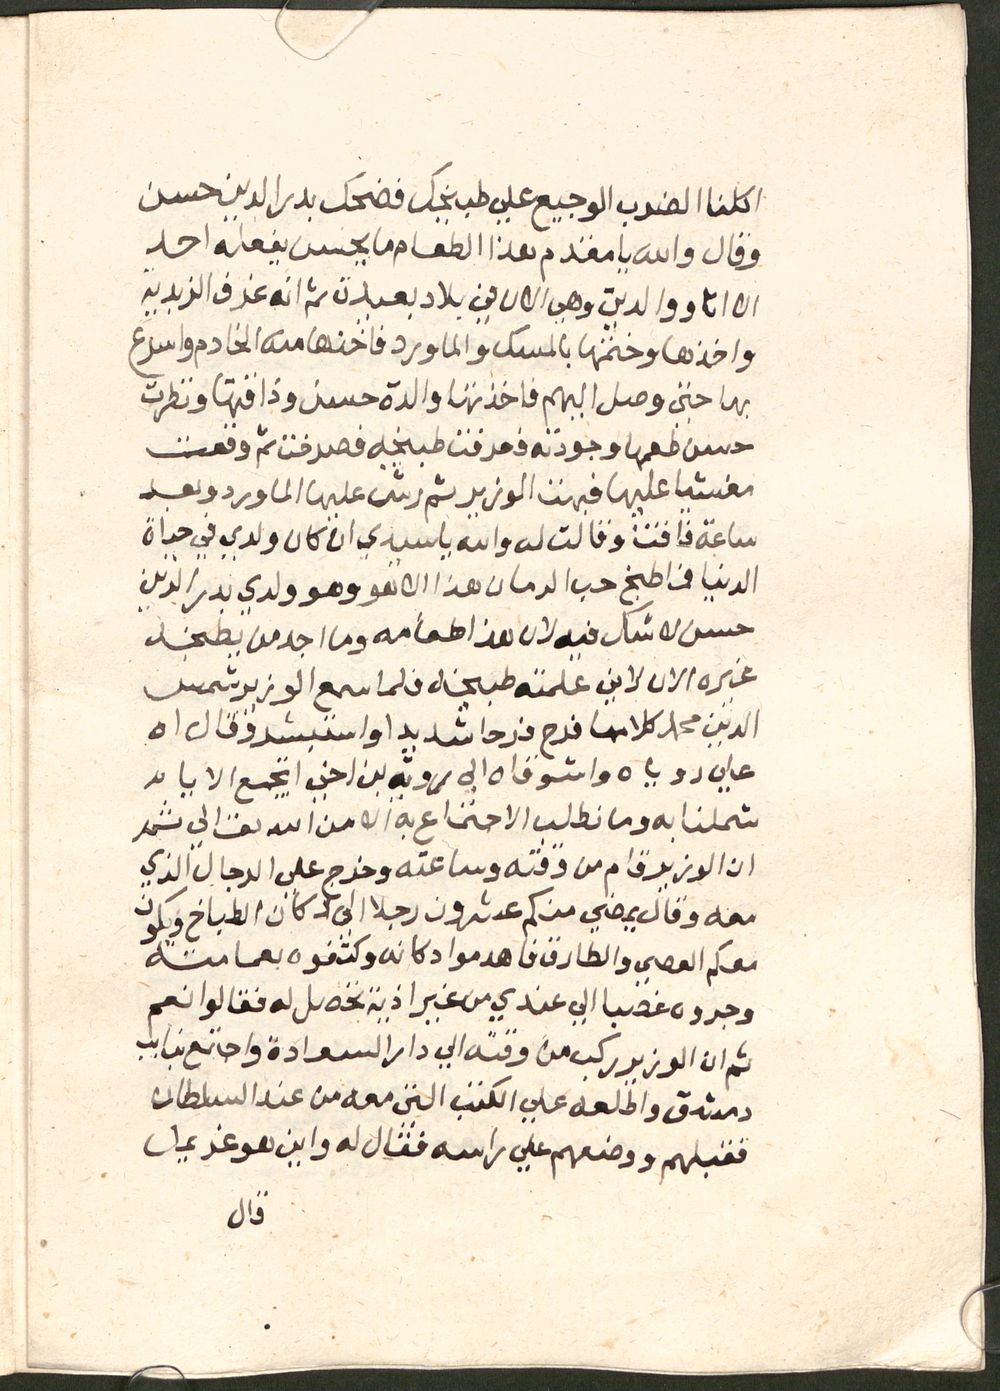 اكلنا الضرب الوجيع علي طبيخك فضحك بدر الدين حسن
وقال والله يا مقدم هذا الطعام ما يحسن يفعله احد
الا انا ووالدتي وهي الان في بلاد بعيدة ثم انه غرف الزبدية
واخذها وختمها بالمسك والماورد فاخذها منه الخادم واسرع
بها حتي وصل اليهم فاخذتها والدة حسن وذاقتها ونظرت
حسن طعمها وجودته فعرفت طبيخه فصرخت ثم وقعت
مغشيا عليها فبهت الوزير ثم رش عليها الماورد وبعد
ساعة فاقت وقالت له والله يا سيدي ان كان ولدي في حياة
الدنيا فما طبخ حب الرمان هذا الا هو وهو ولدي بدر الدين
حسن لا شك فيه لان هذا طعامه وما اجد من يطبخه
غيره الا انا لاني علمته طبيخه فلما سمع الوزير شمس
الدين محمد كلامها فرح فرحا شديدا واستبشر وقال اه
علي رؤياه واشوقاه الي رؤية بن اخي اتجمع الايام
شملنا به وما نطلب الاجتماع به الا من الله تعالي ثم
ان الوزير قام من وقته وساعته وخرج علي الرجال الذي
معه وقال يمضي منكم عشرون رجلا الي دكان الطباخ ويكون
معكم العصي والمطارق فاهدموا دكانه وكتفوه بعمامته
وجروه غصبا الي عندي من غير اذية تحصل له فقالوا نعم
ثم ان الوزير ركب من وقته الي دار السعادة واجتمع بنايب
دمشق واطلعه علي الكتب التي معه من عند السلطان
فقبلهم ووضعهم علي راسه فقال له واين هو غريمك
قال